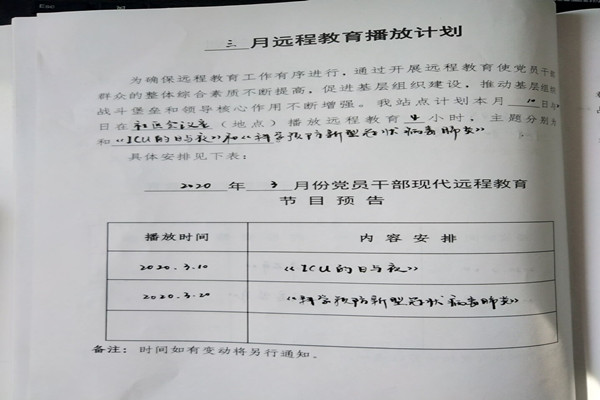 三 月远程教育播放计划
为确保远程教育工作有序进行，通过开展远程教育使党员干部
群众的整体综合素质不断提高，促进基层组织建设，推动基层组织
战斗堡垒和领导核心作用不断增强。我站点计划本月 10 日与
日在 社区会议室 （地点）播放远程教育 4 小时，主题分别为
和《ICU的日与夜》和《科学预防新型冠状病毒肺炎》
具体安排见下表：
2020 年 3 月份党员干部现代远程教育
节目预告
播放时间 内容安排
2020.3.10 《ICU的日与夜》
2020.3.20 《科学预防新型冠状病毒肺炎》
备注：时间如有变动将另行通知。